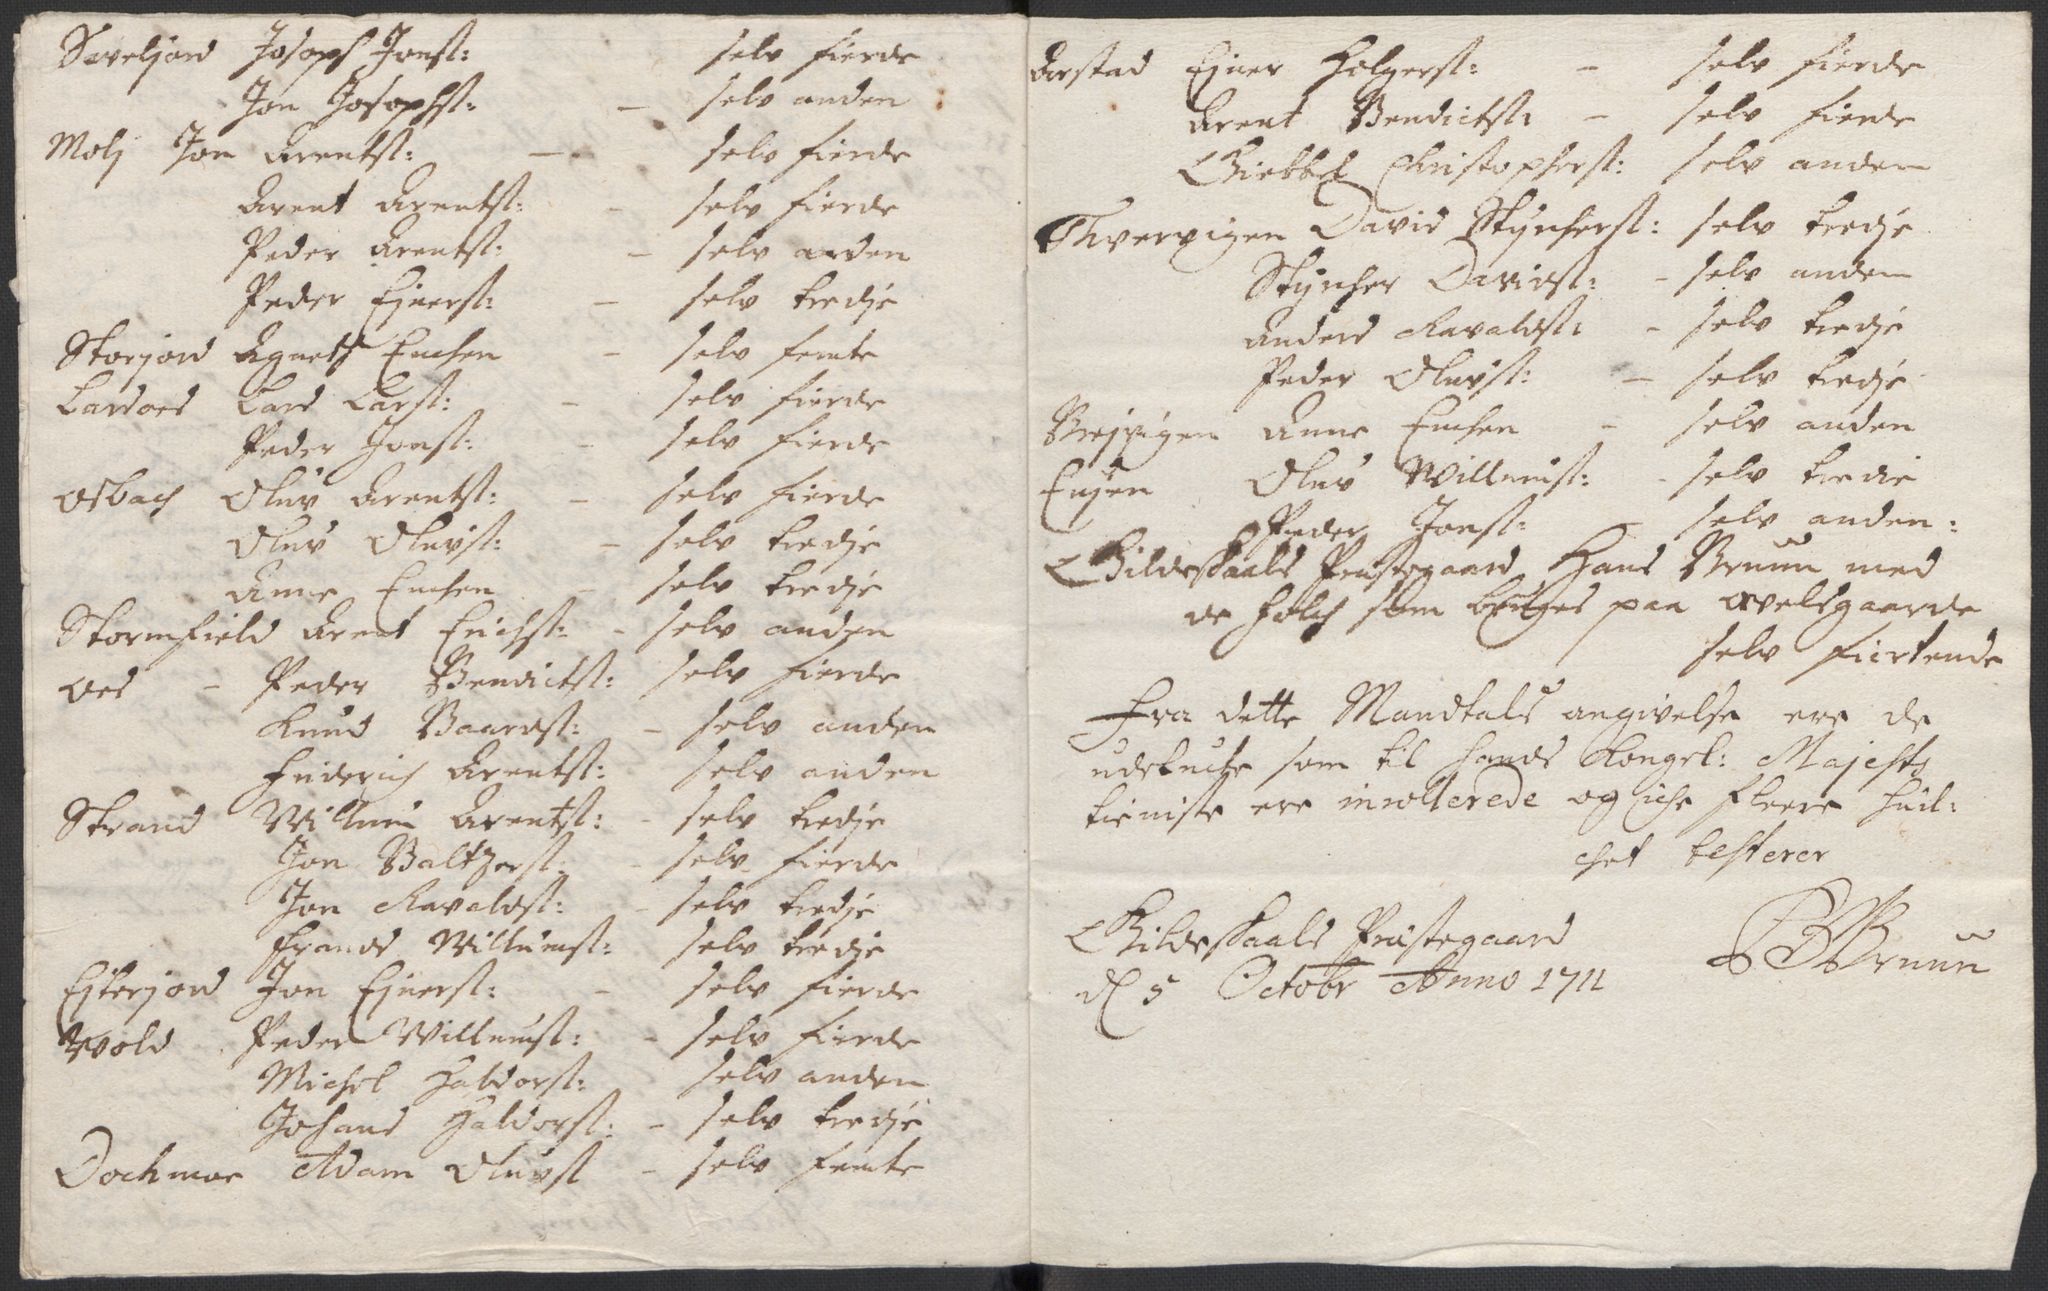 Sveljord Joseph Jonsß: selv fierde
Jon Josephsß: – selv anden
Molj Jon Arentsß: – selv fierde
Arent Arentsß: – selv fierde
Peder Arentsß: – selv anden
Peder Ejnersß: – selv tredje
Storjord Agneth Enchen – selv femte
Lars Larsß: – selv fierde
Peder Jonsß: – selv fierde
Osbach Oluv Arentsß: – selv fierde
Oluv Oluvsß: – selv tredje
Anne Enchen – selv tredje
Stormfield Arent Erichsß: – selv anden
Aes – Peder Bendictsß: selv fierde
Knud Baardsß: – selv anden
Friderich Arentsß: selv anden
Strand Willum Arentsß: – selv tredje
Jon Baltzersß: – selv fierde
Jon Ravaldsß: – selv tredje
Frands Willumsß: selv tredje
Ejterjord Jon Ejnersß: – selv fierde
Wold Peder Willumsß: – selv fierde
Michel Haldorsß: selv anden
Johans Haldorsß: – selv tredje
Dochmoe Adam Oluvsß – selv femte
Arstad Ejner Holgersß: – selv fierde
Arent Bendictsß: – selv fierde
Christophersß: selv anden
Thvervigen David Stynchersß: selv tredje
Styncher Davidsß: – selv anden
Anders Ravaldsß: – selv tredje
Peder Oluvsß: – selv tredje
Nejvigen Anne Enchen – selv anden
Enjen Oluv Willumsß: – selv tredie
Peder Jonsß: – selv anden:
Gildeskaals Præstegaard Hans Bruun med
de folch som bruges paa Avelsgaarde
selv fiortende
Fra dette Mandtals angivelse ere de
udeluchte som til hands Kongel: Majestz
tieniste ere inrollerede og iche fleere hvil:
chet testerer
Gildeskaals Præstegaard
d 5 Octobr Anno 1711
Bruun